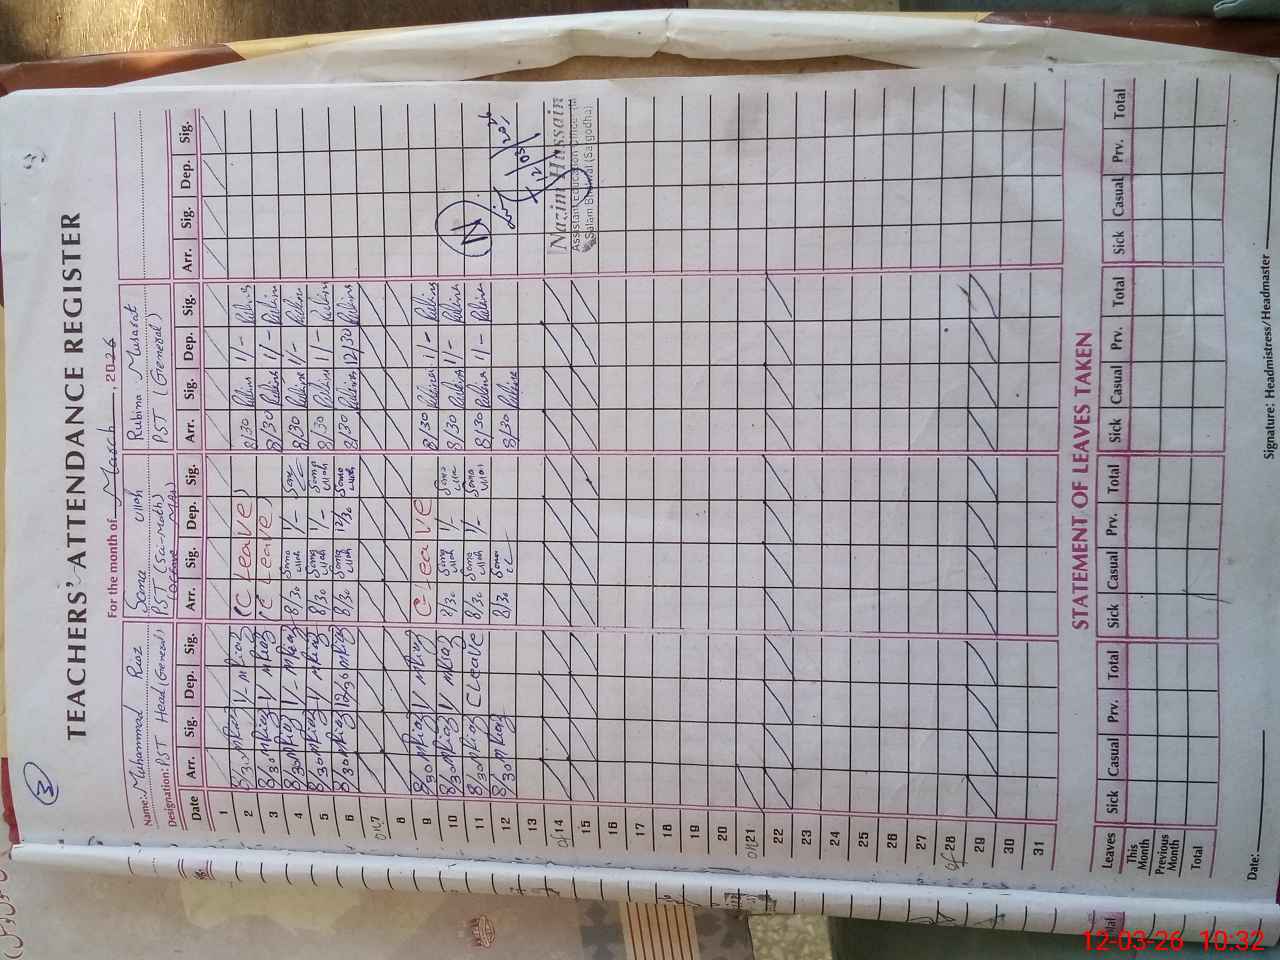 3
TEACHERS' ATTENDANCE REGISTER
For the month of March, 2026
Name: Muhammad Riaz Soma Ullah Rubina Musarat
Designation: PST Head (General) PST (Sci-math) PST (General)
Date Arr. Sig. Dep. Sig. Arr. Sig. Dep. Sig. Arr. Sig. Dep. Sig. Arr. Sig. Dep. Sig.
1
2 8/30 MRiaz 1/- MRiaz (C Leave) 8/30 Rubina 1/- Rubina
3 8/30 MRiaz 1/ MRiaz (C Leave) 8/30 Rubina 1/- Rubina
4 8/30 MRiaz 1/- MRiaz 8/30 Soma Ullah 1/- Soma 8/30 Rubina 1/- Rubina
5 8/30 MRiaz 1/ MRiaz 8/30 Soma Ullah 1/- Soma Ullah 8/30 Rubina 1/- Rubina
6 8/30 MRiaz 12/30 MRiaz 8/30 Soma Ullah 12/30 Soma Ullah 8/30 Rubina 12/30 Rubina
on 7
8
9 8/30 MRiaz 1/ MRiaz C Leave 8/30 Rubina 1/- Rubina
10 8/30 MRiaz 1/ MRiaz 8/30 Soma Ullah 1/- Soma Ullah 8/30 Rubina 1/- Rubina
11 8/30 MRiaz C Leave 8/30 Soma Ullah 1/- Soma Ullah 8/30 Rubina 1/- Rubina
12 8/30 MRiaz 8/30 Soma 8/30 Rubina
13
of 14
15
Nazim Hussain
Assistant Education Officer (M
Salam Bhalwal (Sargodha)
16
17
18
19
20
on 21
22
23
24
25
26
27
of 28
29
30
31
STATEMENT OF LEAVES TAKEN
Leaves Sick Casual Prv. Total Sick Casual Prv. Total Sick Casual Prv. Total Sick Casual Prv. Total
This Month
Previous Month
Total
Date: Signature: Headmistress/Headmaster
12-03-26 10:32